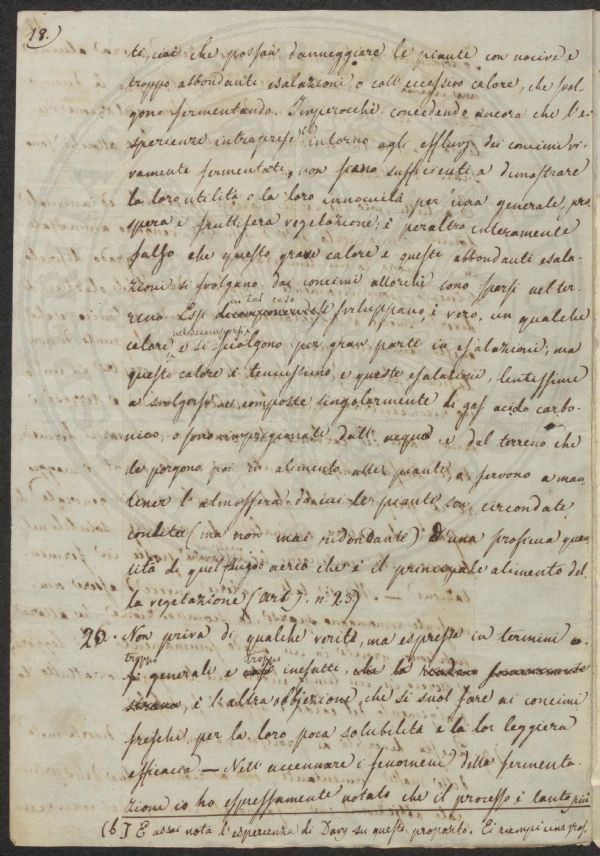 18.
ti, cioè che possan danneggiare le piante con nocive e
troppo abbondanti esalazioni o coll'eccessivo calore, che svol-
gono fermentando. Imperocchè concedendo ancora che l'e-
sperienze intraprese (b) intorno agli effluvj dei concimi vi-
vamente fermentati, non siano sufficienti a dimostrare
la loro utilità o la loro innocuità per una generale, pro-
spera e fruttifera vegetazione; è peraltro interamente
falso che questo grave calore e queste abbondanti esala-
zioni si svolgano dai concimi allorchè sono sparsi nel ter-
reno. Essi in tal caso sviluppano, è vero, un qualche
calore nel decomporsi e si sciolgono per gran parte in esalazioni; ma
questo calore è tenuissimo, e queste esalazioni, lentissime
a svolgersi e composte singolarmente di gas acido carbo-
nico, o sono imprigionate dall'acqua e dal terreno che
le porgono poi in alimento alle piante, o servono a man-
tener l'atmosfera da cui le piante son circondate
condita (ma non mai ridondante) d'una prossima quan-
tità di quel sugo aereo che è il principale alimento del-
la vegetazione (Art. j. n. 23)
26. Non priva di qualche verità, ma espressa in termini
troppo generali e troppo inesatti, è l'altra obbjezione, che si suol fare ai concimi
freschi per la loro poca solubilità e la lor leggiera
efficacia — Nell'accennare i fenomeni della fermenta-
zione io ho espressamente notato che il processo è tanto più
(b) È assai nota l'esperienza di Davy su questo proposito. Ei riempì una gros.